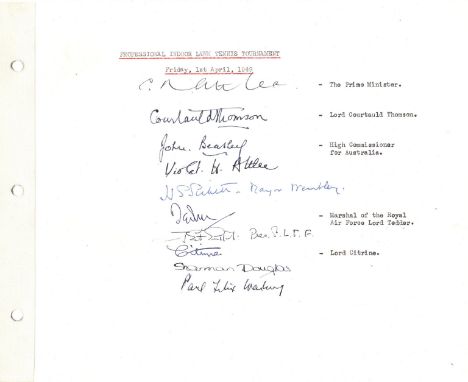 PROFESSIONAL INDOOR LAWN TENNIS TOURNAMENT
Friday, 1st April, 1949
C R Attlee - The Prime Minister.
Courtauld Thomson - Lord Courtauld Thomson.
John. Beasley - High Commissioner
for Australia.
Violet H. Attlee
Mayor Wembley.
Tedder - Marshal of the Royal
Air Force Lord Tedder.
Citrine - Lord Citrine.
Sharman Douglas
Paul Felix Warburg